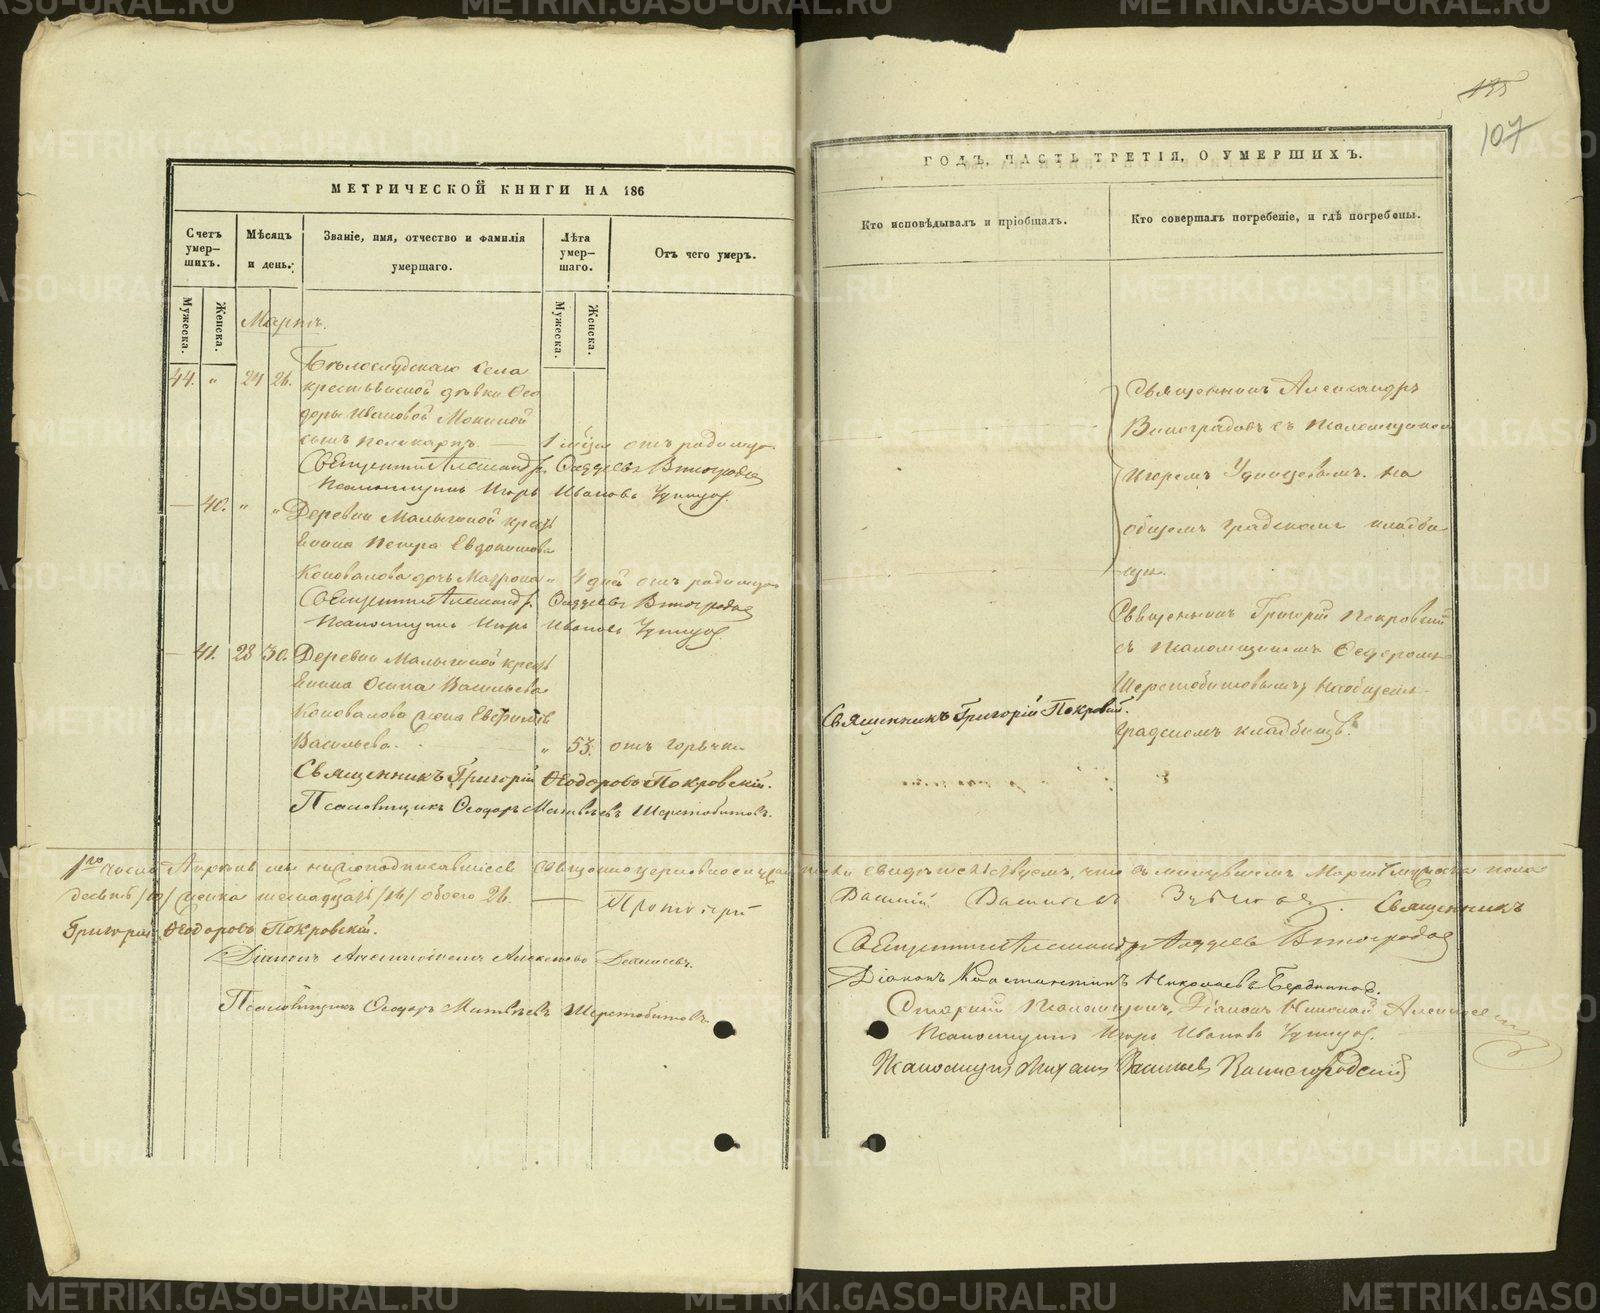 135
107
МЕТРИЧЕСКОЙ КНИГИ НА 186
ГОДЪ, ЧАСТЬ ТРЕТІЯ, О УМЕРШИХЪ.
Счетъ умер-
шихъ.
Мѣсяцъ
и день.
Званіе, имя, отчество и фамилія
умершаго.
Лѣта
умер-
шаго.
Отъ чего умеръ.
Кто исповѣдывалъ и пріобщалъ.
Кто совершалъ погребеніе, и гдѣ погребены.
Мужеска.
Женска.
Мужеска.
Женска.
Мартъ.
44. " 24 26. Бѣлослудскаго села
крестьянской дѣвки Ѳео
доры Ивановой Мокиной
сынъ Поликарпъ — 1 мѣся отъ родимца
Священникъ Александръ Ѳаддеевъ Виноградовъ
Псаломщикъ Игорь Ивановъ Удинцовъ.
— 40. " " Деревни Малыгиной крест
янина Петра Евдокимова
Коновалова дочь Матрона " 4 дней отъ родимца
Священникъ Александръ Ѳаддеевъ Виноградовъ
Псаломщикъ Игорь Ивановъ Удинцовъ
— 41. 28 30. Деревни Малыгиной крест
янина Осипа Васильева
Коновалова жена Евфимія
Васильева. " 53. отъ горячки
Священникъ Григорій Ѳеодоровъ Покровскій.
Псаломщикъ Ѳеодоръ Матвѣевъ Шерстобитовъ.
Священникъ Александръ
Виноградовъ съ псаломщикомъ
Игоремъ Удинцовымъ. На
общемъ градскомъ кладби
щѣ.
Священникъ Григорій Покровскій
съ псаломщикомъ Ѳедоромъ
Шерстобитовымъ на общемъ
Священникъ Григорій Покровскій.
градскомъ кладбищѣ.
1го числа Апрѣля мы нижеподписавшіеся священноцерковнослужители свидѣтельствуемъ, что въ минувшемъ Мартѣ мужеска пола
десять /10/ женска шестнадцать /16/ обоего 26. — Протоіерей Василій Священникъ
Григорій Ѳеодоровъ Покровскій.
Священникъ Александръ Ѳаддеевъ Виноградовъ
Діаконъ Алексѣевъ
Діаконъ Константинъ Николаевъ Бердниковъ.
Псаломщикъ Ѳеодоръ Матвѣевъ Шерстобитовъ.
Старшій Псаломщикъ, Діаконъ Николай
Псаломщикъ Игорь Ивановъ Удинцовъ.
Псаломщикъ Михаилъ Васильевъ
METRIKI.GASO-URAL.RU